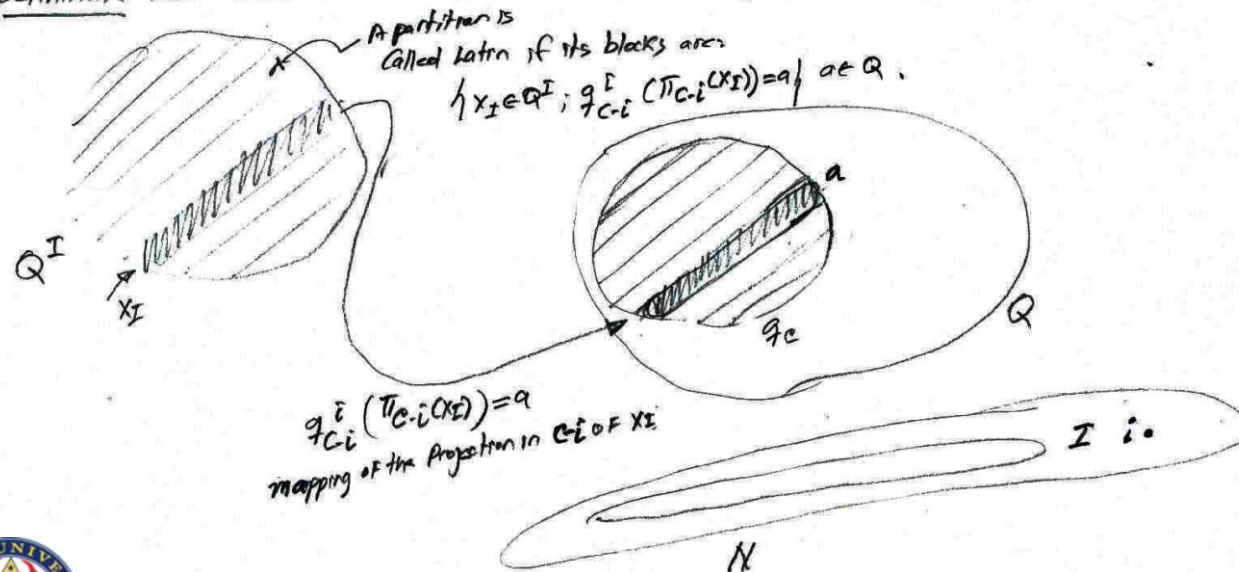 A partition is
Called Latin if its blocks are:
{x_I ∈ Q^I ; q^i_{C-i} (π_{C-i}(x_I)) = a} a ∈ Q.
a
Q^I
x_I
q_C
Q
q^i_{C-i} (π_{C-i}(x_I)) = a
mapping of the Projection in C-i of x_I
I i.
N
UNIVE